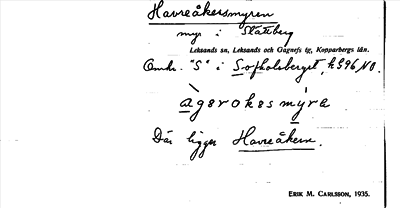 Havreåkersmyren
myr i Slättberg
Leksands sn, Leksands och Gagnefs tg, Kopparbergs län.
"S" i Sofholsberget, k 596 NO.
àgerokesmýra
Där ligger Havreåkern.
ERIK M. CARLSSON, 1935.